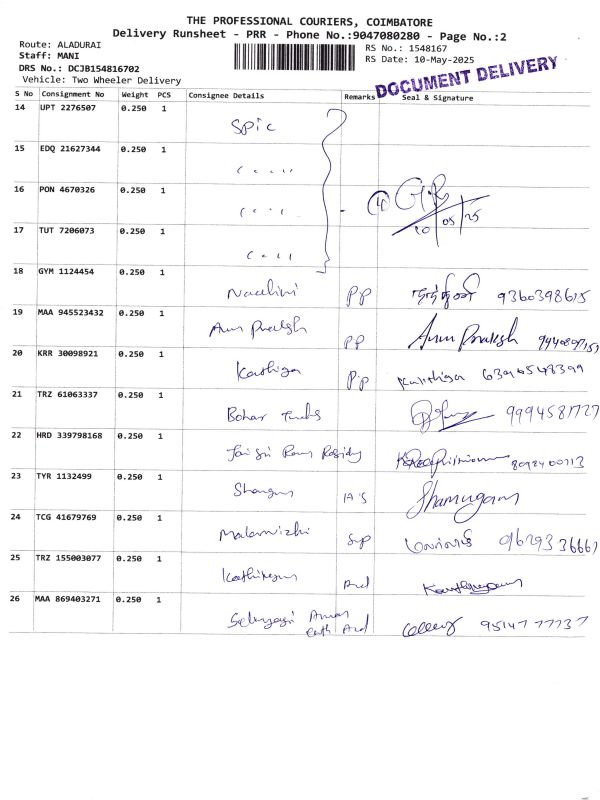 THE PROFESSIONAL COURIERS, COIMBATORE
Delivery Runsheet - PRR - Phone No.:9047080280 - Page No.:2
Route: ALADURAI
Staff: MANI
DRS No.: DCJB154816702
Vehicle: Two Wheeler Delivery
RS No.: 1548167
RS Date: 10-May-2025
DOCUMENT DELIVERY
S No Consignment No Weight PCS Consignee Details Remarks Seal & Signature
14 UPT 2276507 0.250 1 Spic
15 EDQ 21627344 0.250 1
16 PON 4670326 0.250 1 4 10/05/25
17 TUT 7206073 0.250 1
18 GYM 1124454 0.250 1 Nachini PP 9360398615
19 MAA 945523432 0.250 1 Arun Prakash PP Arun Prakash
20 KRR 30098921 0.250 1 Karthiga PP
21 TRZ 61063337 0.250 1 9994581727
22 HRD 339798168 0.250 1 Jai Sri Ram
23 TYR 1132499 0.250 1 Shamugam
24 TCG 41679769 0.250 1 Malarvizhi
25 TRZ 155003077 0.250 1
26 MAA 869403271 0.250 1